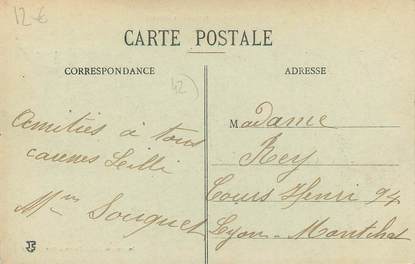 12 €
CARTE POSTALE
CORRESPONDANCE
ADRESSE
42
Amitiés à tous
Madame
Rey
Cours Henri 94
Lyon - Montchat
Mme Souquet